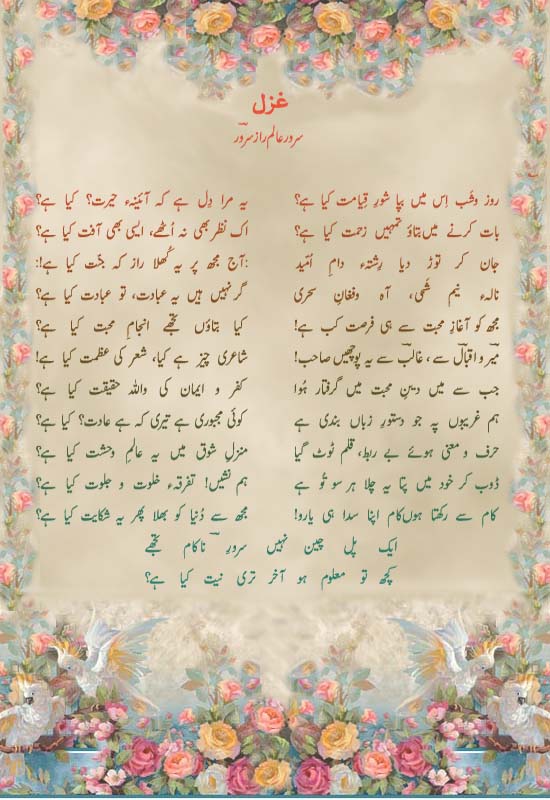 غزل
سرور عالم راز سرورؔ
روز و شَب اِس میں بپا شورِ قیامت کیا ہے؟ یہ مرا دِل ہے کہ آئینہء حیرت؟ کیا ہے؟
بات کرنے میں بتاؤ تمہیں زحمت کیا ہے؟ اک نظر بھی نہ اُٹھے، ایسی بھی آفت کیا ہے؟
جان کر توڑ دیا رِشتہء دامِ اُمّید آج مجھ پر یہ کُھلا راز کہ جنّت کیا ہے!
نالہء نیم شَمی، آہ وفغانِ سحری گر نہیں ہیں یہ عبادت، تو عبادت کیا ہے؟
مجھ کو آغازِ محبت سے ہی فرصت کب ہے! کیا بتاؤں تجھے انجامِ محبت کیا ہے؟
میرؔ و اقبالؔ سے، غالبؔ سے یہ پوچھیں صاحب! شاعری چیز ہے کیا، شعر کی عظمت کیا ہے!
جب سے میں دیںِ محبت میں گرفتار ہُوا کفر و ایمان کی واللہ حقیقت کیا ہے؟
ہم غریبوں پہ جو دستورِ زباں بندی ہے کوئی مجبوری ہے تیری کہ ہے عادت؟ کیا ہے؟
حرف و معنی ہوئے بے ربط، قلم ٹوٹ گیا منزلِ شوق میں یہ عالمِ وحشت کیا ہے؟
ڈوب کر خود میں پتا یہ چلا ہر سو تُو ہے ہم نشیں! تفرقہء خلوت و جلوت کیا ہے؟
کام سے رکھتا ہوں کام اپنا سدا ہی یارو! مجھ سے دُنیا کو بھلا پھر یہ شکایت کیا ہے؟
ایک پل چین نہیں سرورِؔ ناکام تجھے
کچھ تو معلوم ہو آخر تری نیت کیا ہے؟